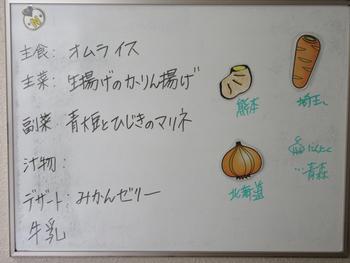 主食: オムライス
主菜: 生揚げのかりん揚げ
副菜: 青大豆とひじきのマリネ
汁物:
デザート: みかんゼリー
牛乳
熊本
埼玉
にんにく
…青森
北海道